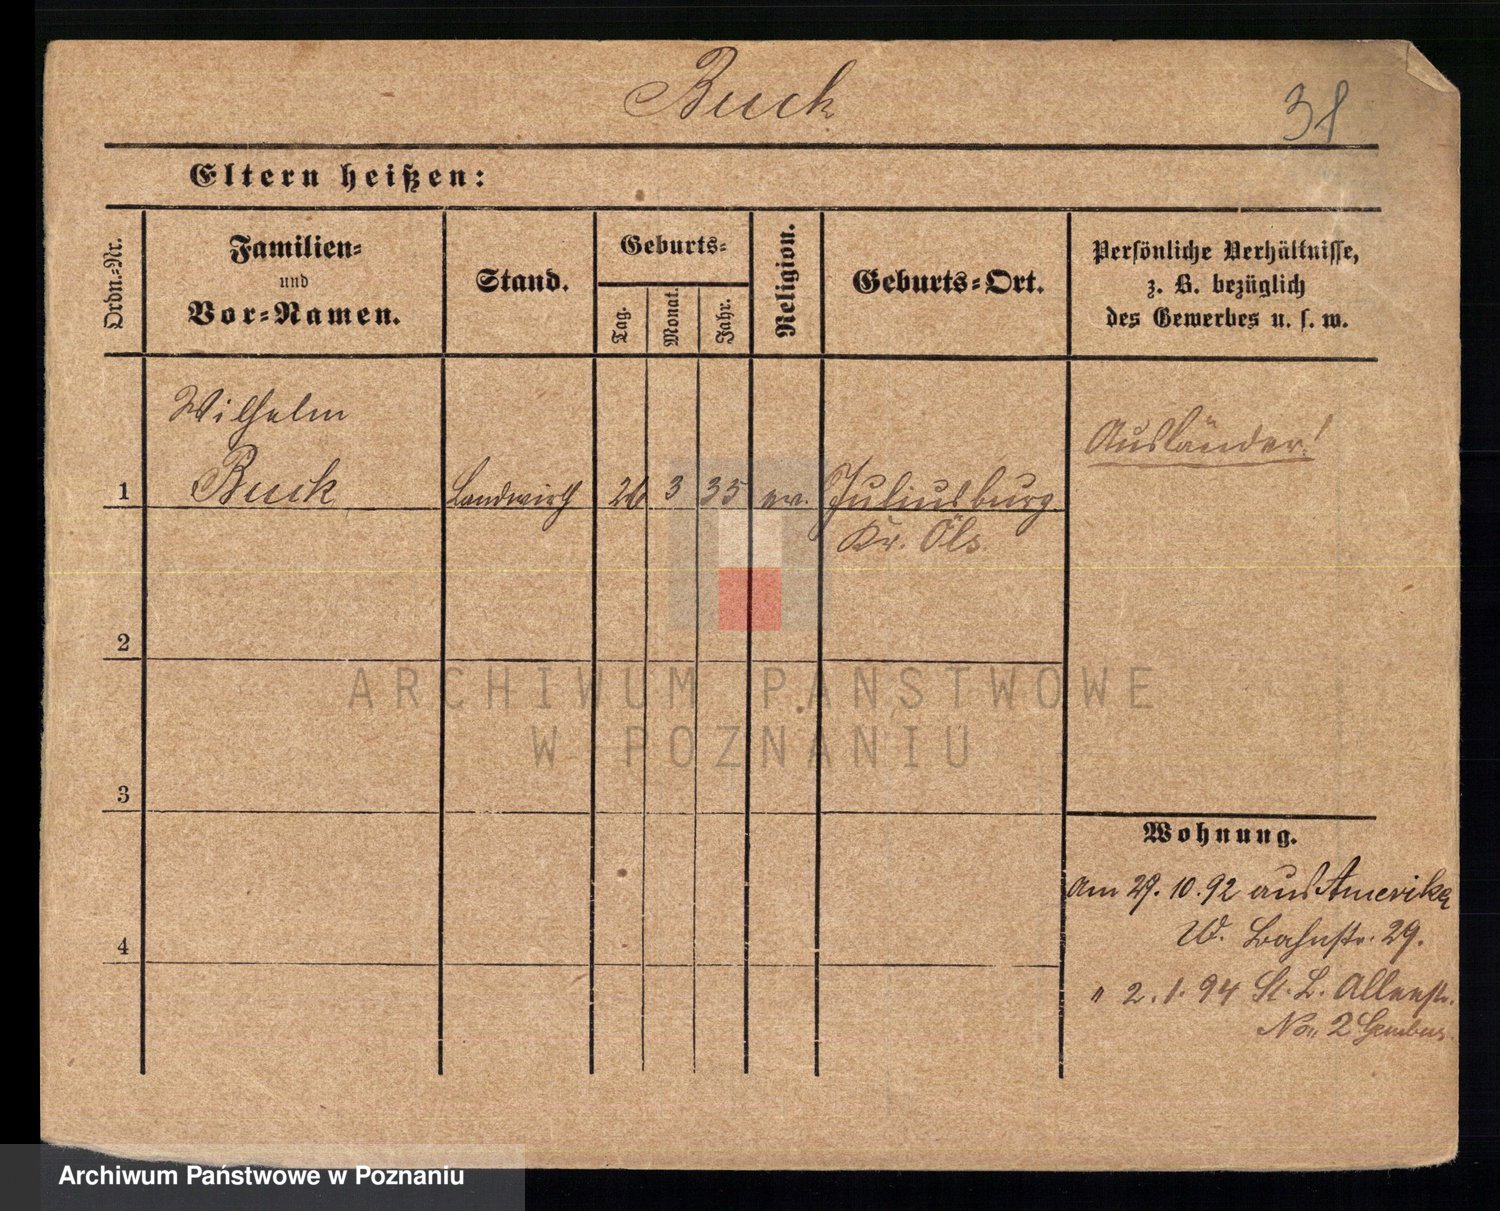 Buck
38
Eltern heißen:
Ordn.-Nr.
Familien-
und
Vor-Namen.
Stand.
Geburts-
Tag.
Monat.
Jahr.
Religion.
Geburts-Ort.
Persönliche Verhältnisse,
z. B. bezüglich
des Gewerbes u. s. w.
Wilhelm
Buck
1
Landwirth
26
3
35
ev.
Juliusburg
Kr. Öls.
Ausländer!
2
3
4
Wohnung.
Am 29. 10. 92 aus Amerika
W. Bahnstr. 29.
" 2. 1. 94 St. L.
No. 2
ARCHIWUM PAŃSTWOWE
W POZNANIU
Archiwum Państwowe w Poznaniu